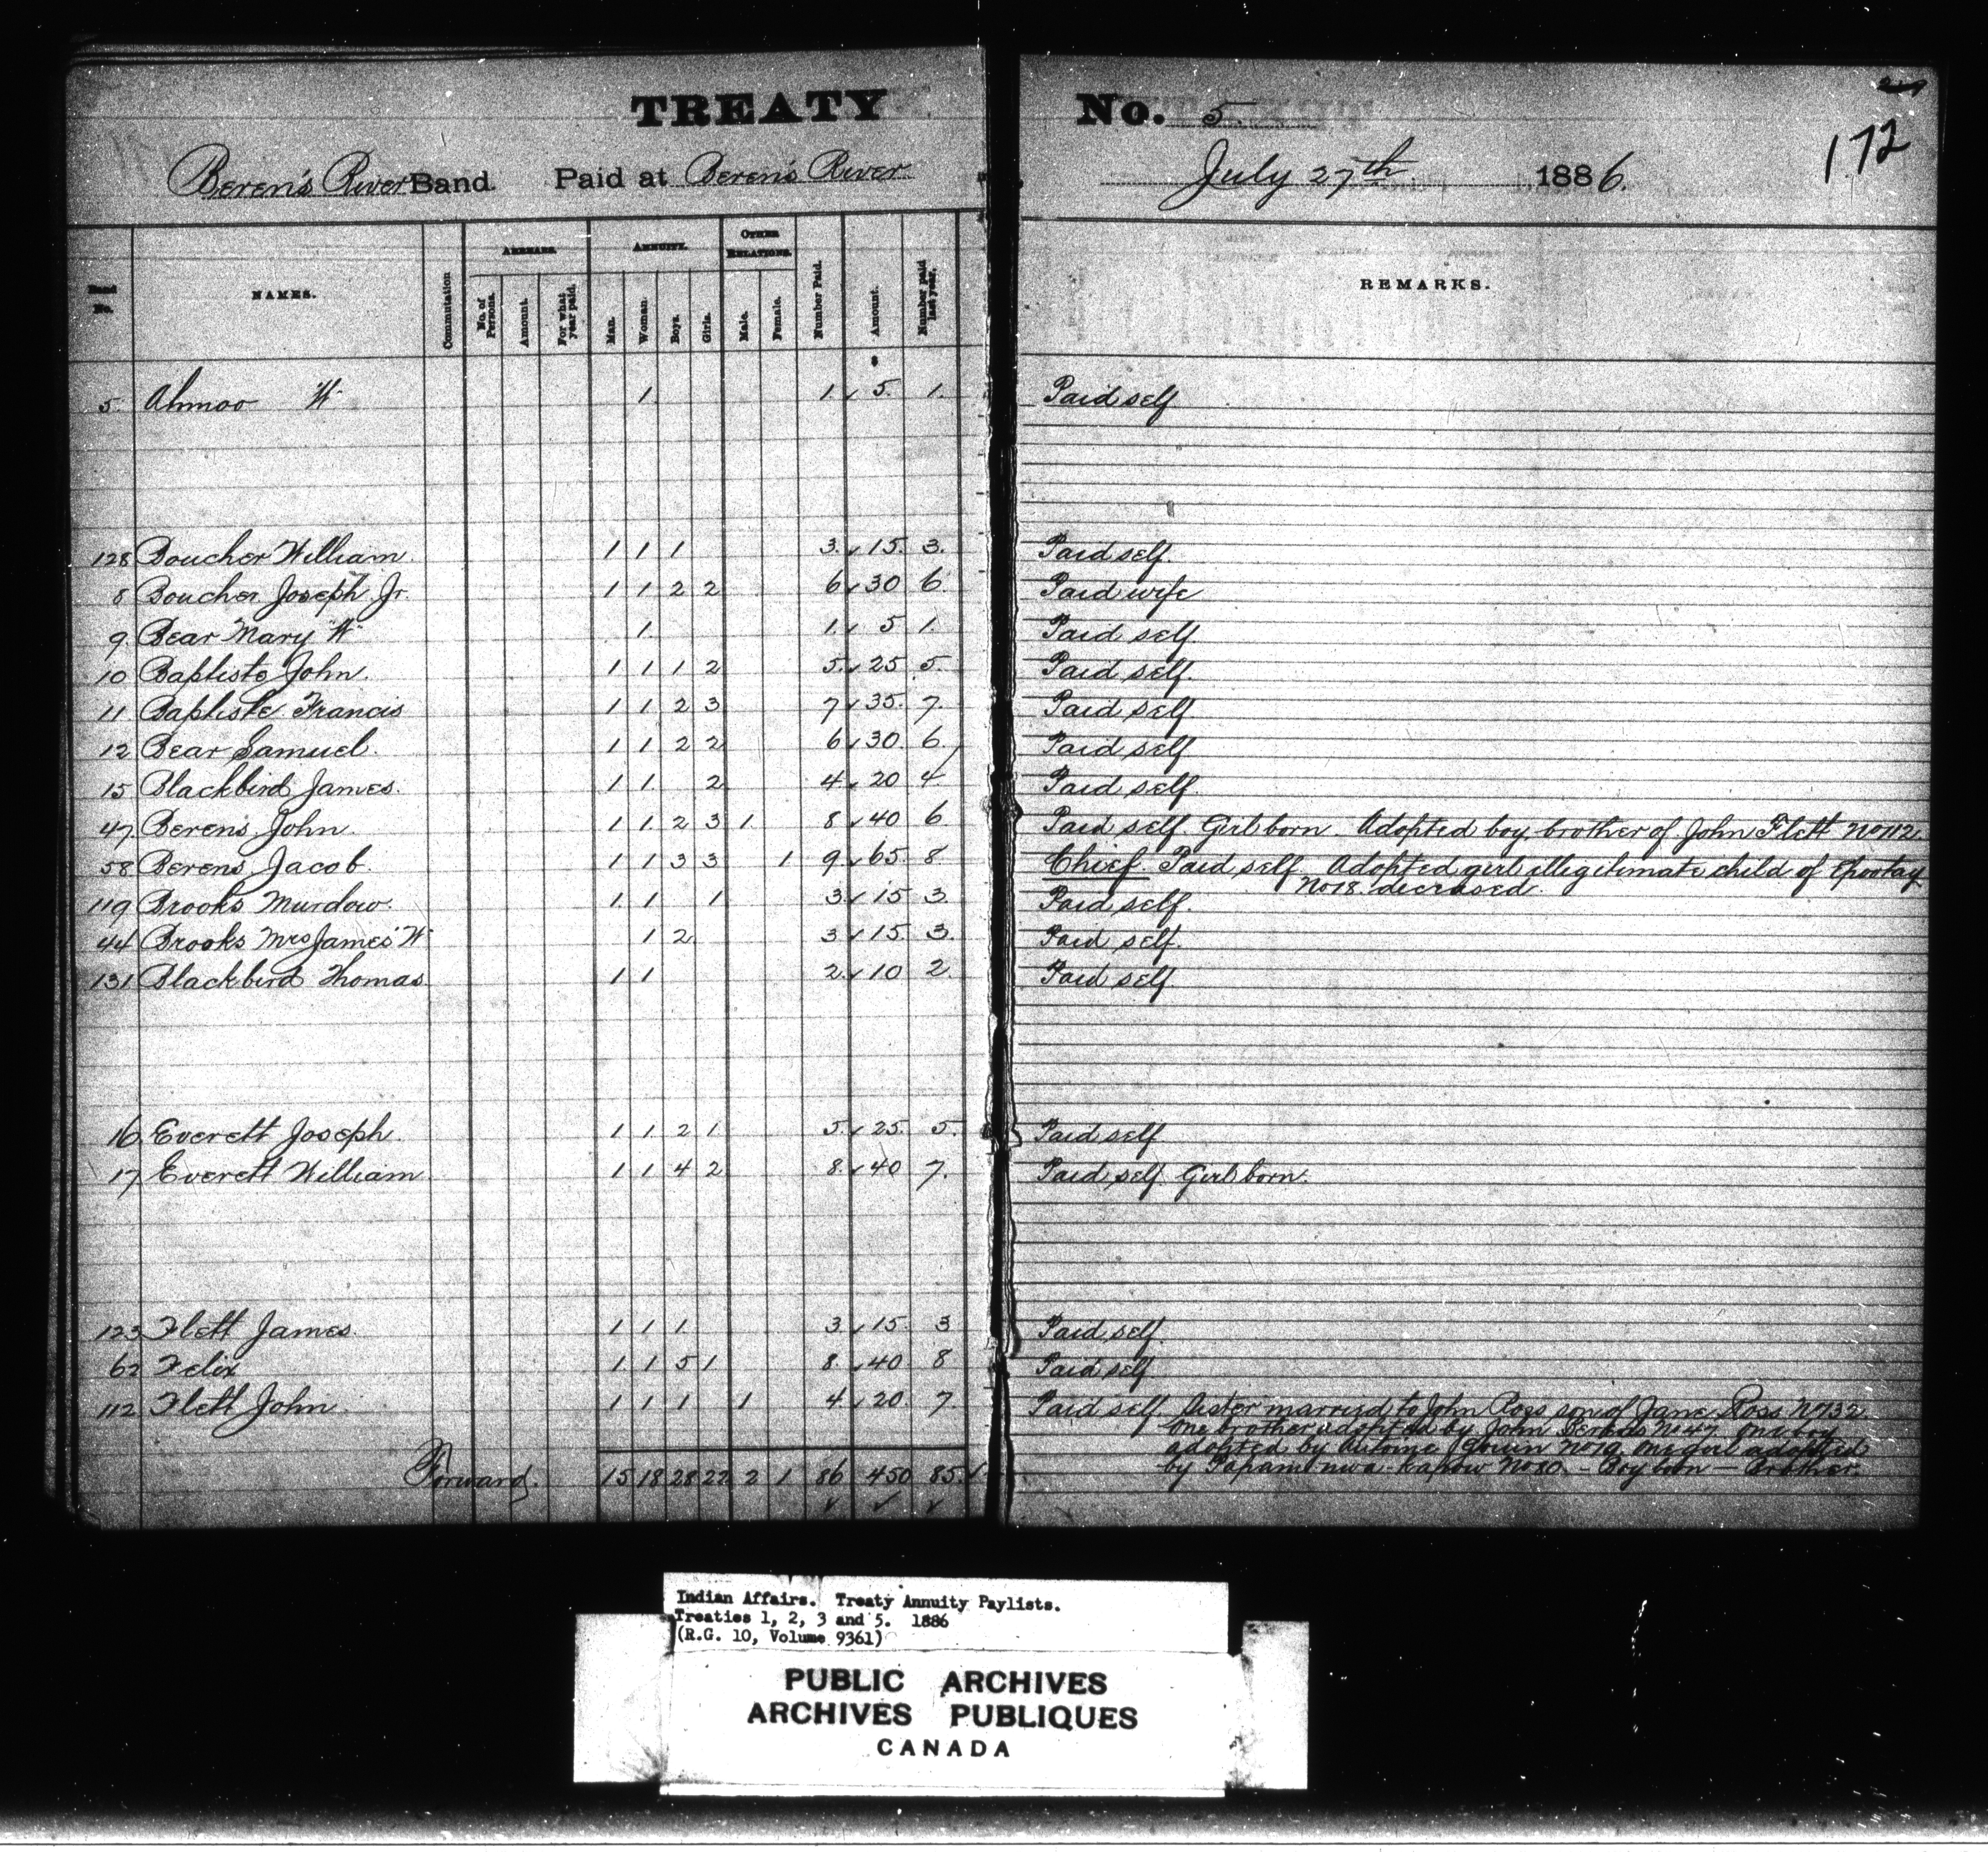 TREATY No. 5.
172
Beren's River Band. Paid at Beren's River July 27th 1886.
Band No. NAMES. Commutation ARREARS. No. of Persons. Amount. For what year paid. ANNUITY. Man. Woman. Boys. Girls. OTHER RELATIONS. Male. Female. Number Paid. Amount. Number paid last year. REMARKS.
5 Ahmoo "W" 1 1 5. 1. Paid self
128 Boucher William. 1 1 1 3. 15. 3. Paid self.
8 Boucher Joseph Jr. 1 1 2 2 6 30 6. Paid wife
9. Bear Mary "W" 1. 1. 5 1. Paid self.
10 Baptiste John. 1 1 1 2 5. 25 5. Paid self.
11 Baptiste Francis 1 1 2 3 7 35. 7. Paid self
12 Bear Samuel. 1 1 2 2 6 30. 6. Paid self
15 Blackbird James. 1 1. 2 4 20 4. Paid self.
47 Berens John. 1 1. 2 3 1. 8 40 6 Paid self. Girl born. Adopted boy brother of John Flett No 112.
58 Berens Jacob. 1 1 3 3 1 9 65. 8 Chief. Paid self. Adopted girl illegitimate child of
No 18. deceased.
119 Brooks Murdow. 1. 1 1 3 15 3. Paid self.
44 Brooks Mrs James "W" 1 2 3 15. 3. Paid self.
131 Blackbird Thomas 1 1 2. 10 2. Paid self
16 Everett Joseph. 1 1. 2 1 5. 25. 5. Paid self
17 Everett William. 1 1 4 2 8. 40 7. Paid self. Girl born.
123 Flett James. 1 1 1. 3. 15. 3 Paid self.
62 Felix 1 1 5 1 8. 40 8 Paid self
112 Flett John. 1 1 1 1 4. 20. 7. Paid self. Sister married to John Ross son of Jane Ross No 132.
One brother adopted by John Berens No 47. One boy
adopted by No 19. One girl adopted
by No 80. - Boy born - Brother.
Forward. 15 18 28 22 2 1 86 450 85.
Indian Affairs. Treaty Annuity Paylists.
Treaties 1, 2, 3 and 5. 1886
(R.G. 10, Volume 9361)
PUBLIC ARCHIVES
ARCHIVES PUBLIQUES
CANADA